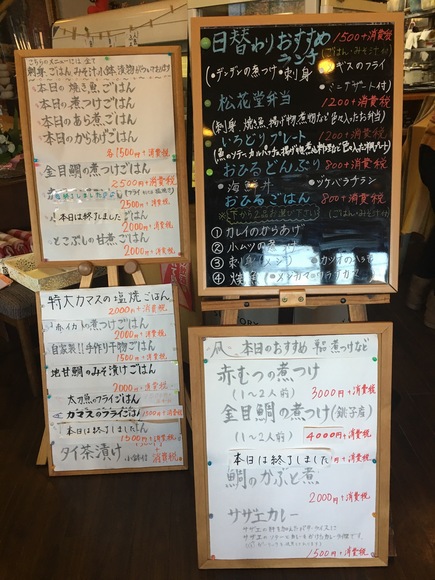 こちらのメニューには全て
刺身、ごはん、みそ汁、小鉢、漬物がついております
本日の焼き魚ごはん
本日の煮つけごはん
本日のあら煮ごはん
本日のからあげごはん
各1500円+消費税
金目鯛の煮つけごはん
2500円+消費税
2500円+消費税
本日は終了しました ごはん
2000円+消費税
とこぶしの甘煮ごはん
2000円+消費税
特大カマスの塩焼ごはん
2000円+消費税
赤イカの煮つけごはん
2000円+消費税
自家製!!手作り干物ごはん
1500円+消費税
地甘鯛のみそ漬けごはん
2000円+消費税
太刀魚のフライごはん
カマスのフライごはん 1500円+消費税
本日は終了しました
1500円+消費税
タイ茶漬け
小鉢付 +消費税
日替わりおすすめランチ 1500+消費税
(ごはん・みそ汁付)
(・デンデンの煮つけ ・刺身 ・キギスのフライ
・ミニデザート付)
・松花堂弁当 1200+消費税
(刺身、焼魚、揚げ物、煮物など色々入ったお弁当)
・いろどりプレート 1200+消費税
・おひるどんぶり 800+消費税
・海鮮丼 ・ヅケバラチラシ
・おひるごはん 800+消費税
※下から2品お選び下さい (ごはん・みそ汁付)
① カレイのからあげ
② 小ムツの煮
③ 刺身
④ 焼魚
本日のおすすめ 単品 煮つけなど
赤むつの煮つけ
(1〜2人前) 3000円+消費税
金目鯛の煮つけ(銚子産)
(1〜2人前) 4000円+消費税
本日は終了しました 円+消費税
鯛のかぶと煮
2000円+消費税
サザエカレー
1500円+消費税